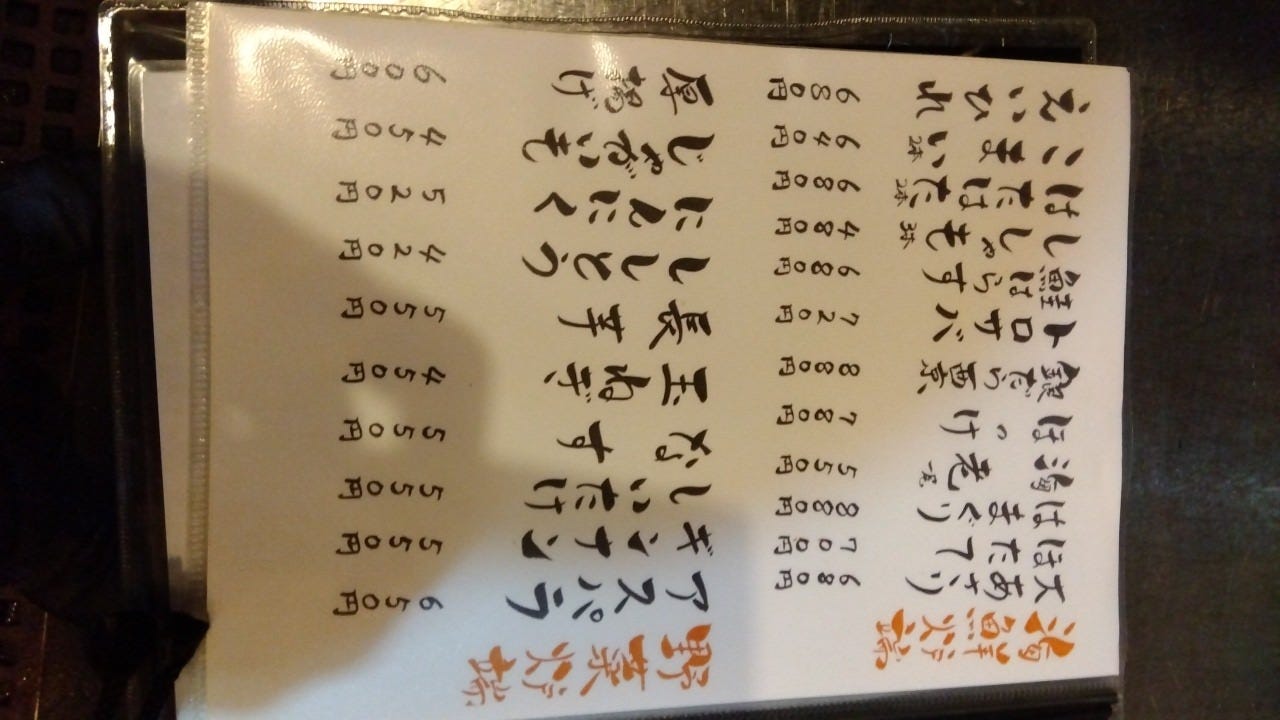 海鮮炉端
大あさり 680円
ほたて 700円
はまぐり 880円
海老 一尾 550円
ほっけ 780円
銀だら西京 880円
トロサバ 720円
鮭はらす 680円
ししゃも 3本 480円
はたはた 2本 680円
こまい 2本 640円
えいひれ 680円
野菜炉端
アスパラ 650円
ギンナン 550円
しいたけ 550円
なす 550円
玉ねぎ 450円
長芋 550円
ししとう 420円
にんにく 520円
じゃがいも 450円
厚揚げ 600円